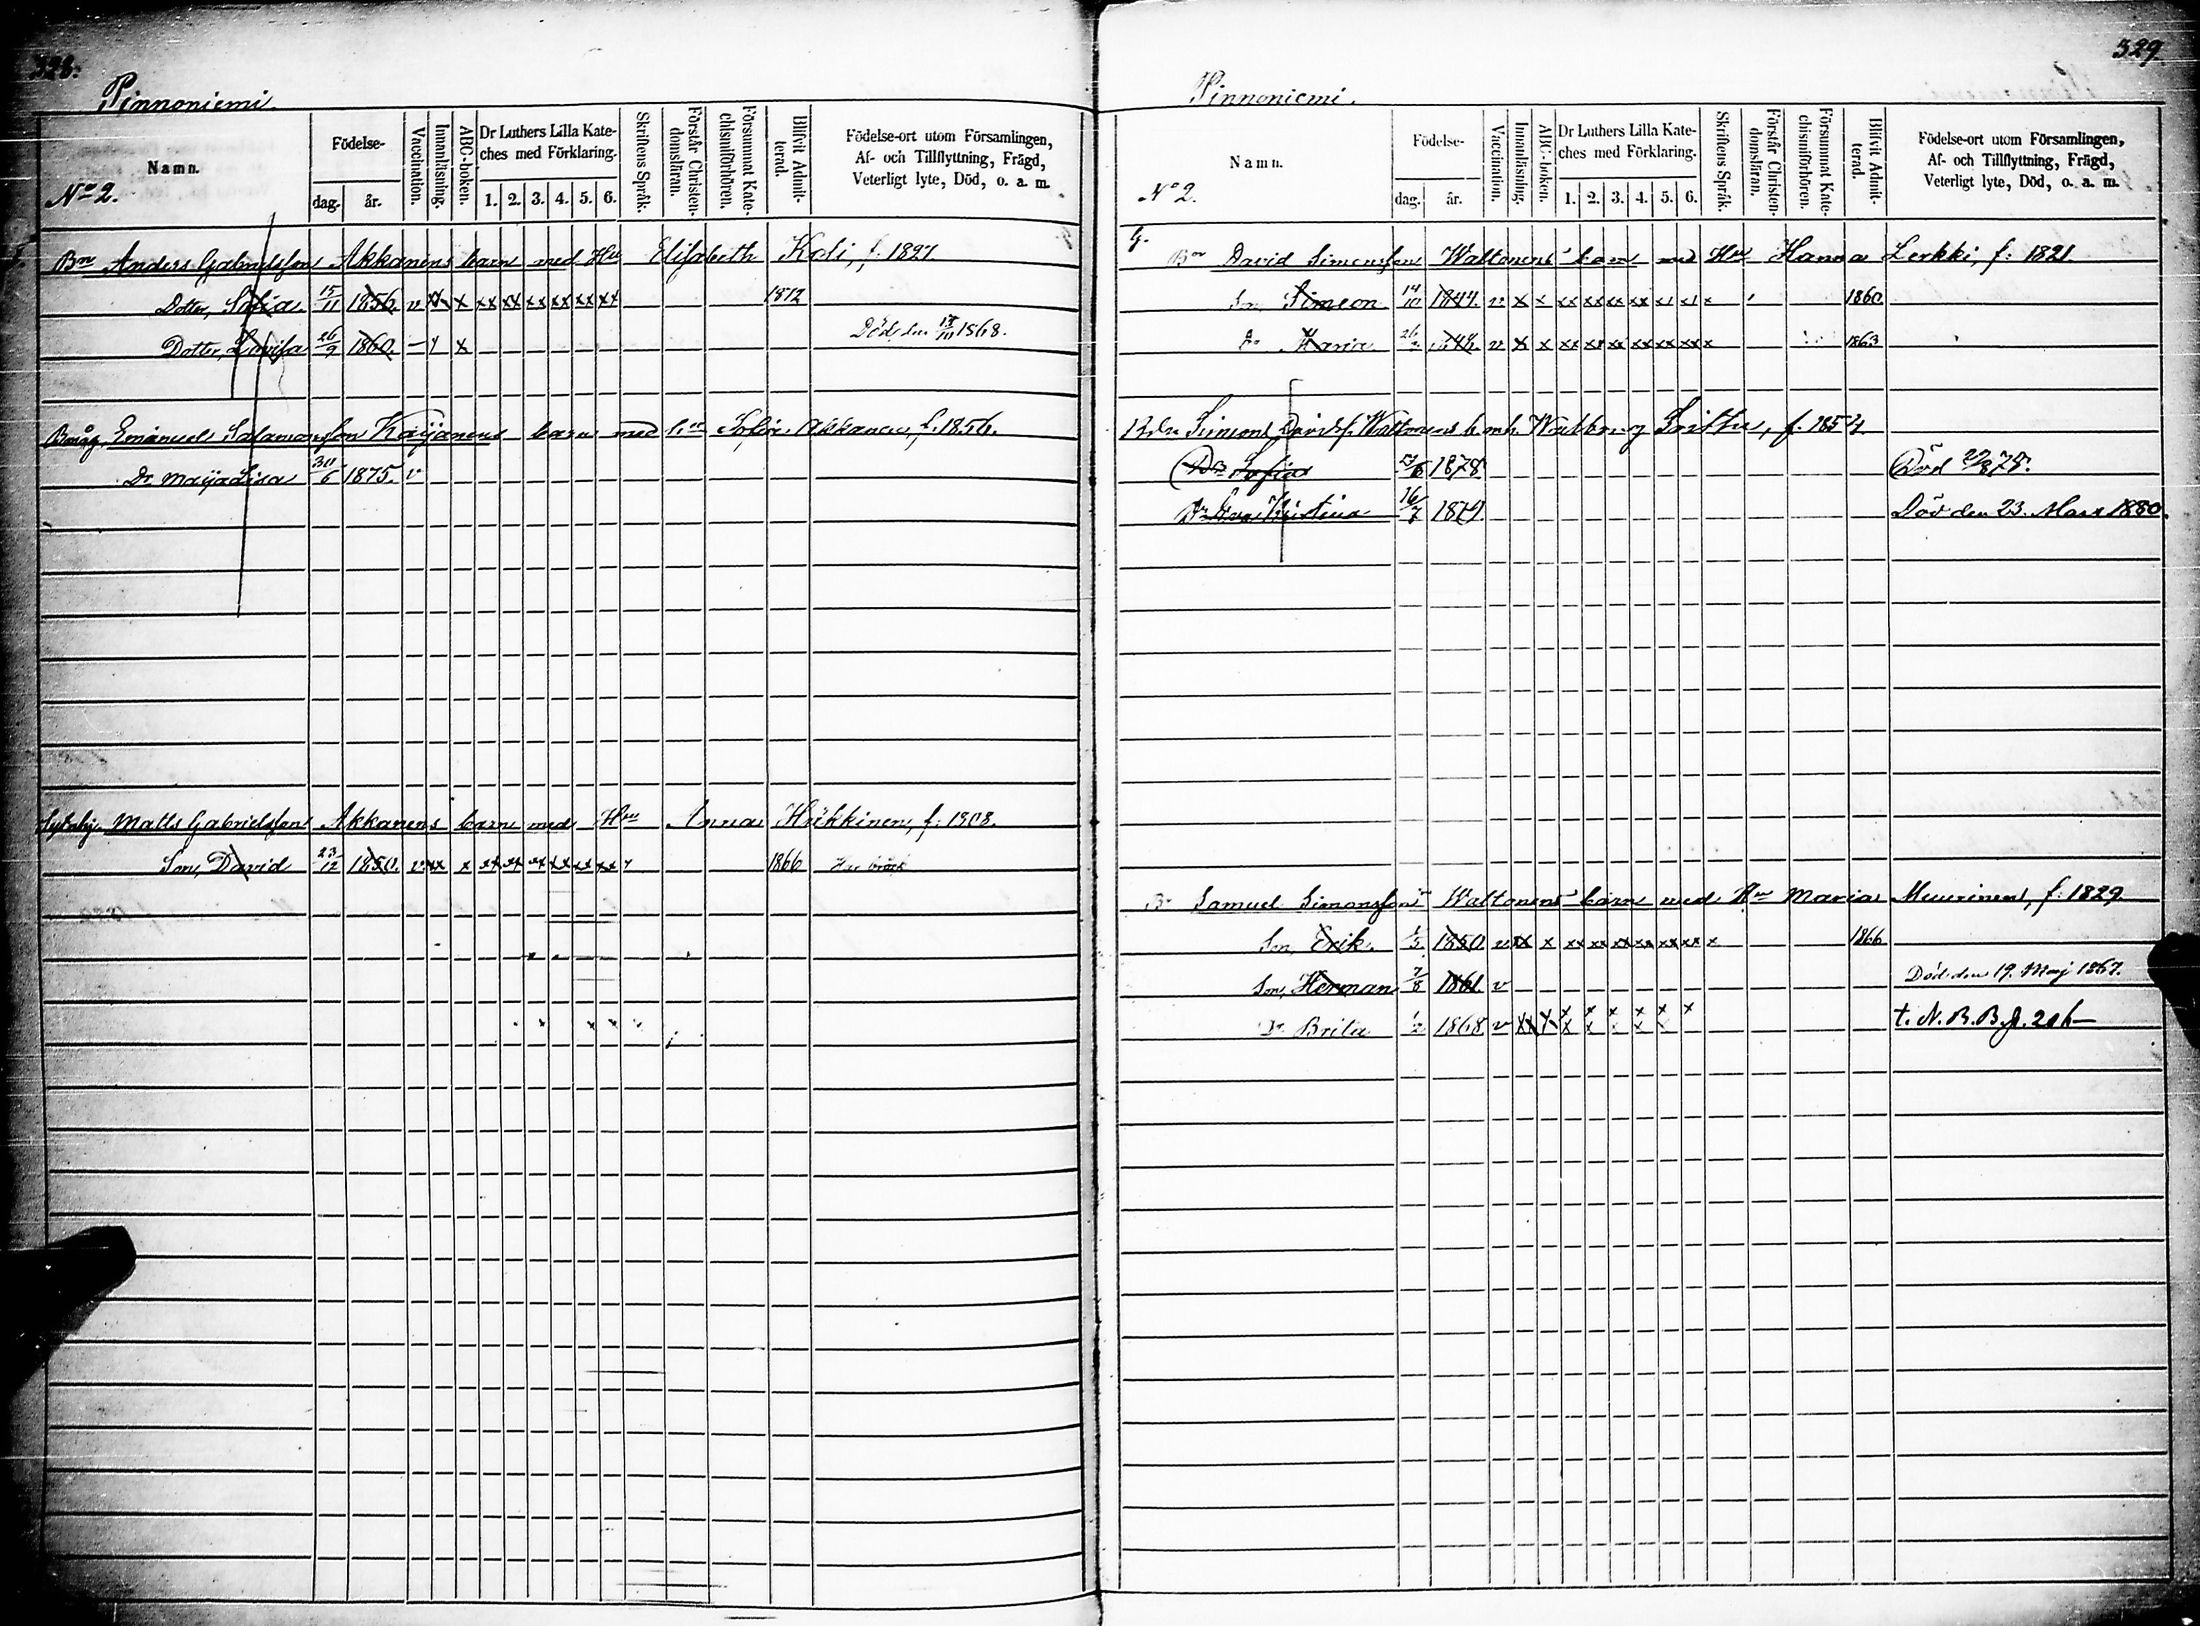 328.
Pinnoniemi
Namn.
No 2.
Födelse-
dag.
år.
Vaccination.
Innanläsning.
ABC-boken.
Dr Luthers Lilla Kate-
ches med Förklaring.
1. 2. 3. 4. 5. 6.
Skriftens Språk.
Förstår Christen-
domsläran.
Försummat Kate-
chismiförhören.
Blifvit Admit-
terad.
Födelse-ort utom Församlingen,
Af- och Tillflyttning, Frägd,
Veterligt lyte, Död, o. a. m.
Bn Anders Gabrielsson Akkanens barn med Hu Elisabeth Kodi, f. 1827
Dotter, Sofia. 15/11 1856. v xx x xx xx xx xx xx xx 1872
Dotter, Lovisa 26/9 1860. x Död den 1868.
Emanuel Salamonsson Kaijanens barn med Sofia Akkanen, f. 1856.
Dr Maija Lisa 30/6 1875. v
Matts Gabrielsson Akkanens barn med Hu Anna Heikkinen, f. 1808.
Son, David 23/12 1850. v xx x xx xx xx xx xx xx x 1866 Har bråck
329.
Pinnoniemi.
Namn.
No 2.
Födelse-
dag.
år.
Vaccination.
Innanläsning.
ABC-boken.
Dr Luthers Lilla Kate-
ches med Förklaring.
1. 2. 3. 4. 5. 6.
Skriftens Språk.
Förstår Christen-
domsläran.
Försummat Kate-
chismiförhören.
Blifvit Admit-
terad.
Födelse-ort utom Församlingen,
Af- och Tillflyttning, Frägd,
Veterligt lyte, Död, o. a. m.
Bn David Simonsson Waltonens barn med Hu Hanna Lerkki, f. 1821.
Son, Simeon 14/10 1844. v x x xx xx xx xx x x x 1860
Maria v x x xx xx xx xx xx xx x 1863
Simons Davidsf. Waltonens f. 1854.
Dr Sofia 1878 Död 78.
Dr Eva Kristina 16/7 1879 Död den 23. Mars 1880.
Bn Samuel Simonsson Waltonens barn med Hu Maria Meurinen, f. 1829.
Son, Erik. 1850 v xx x xx xx xx xx xx xx x 1866
Son, Herman 7/8 1861. v Död den 19. Maj 1867.
Dr Brita 1/2 1868 v xx x x x x x x x t. N. B. B. p. 206